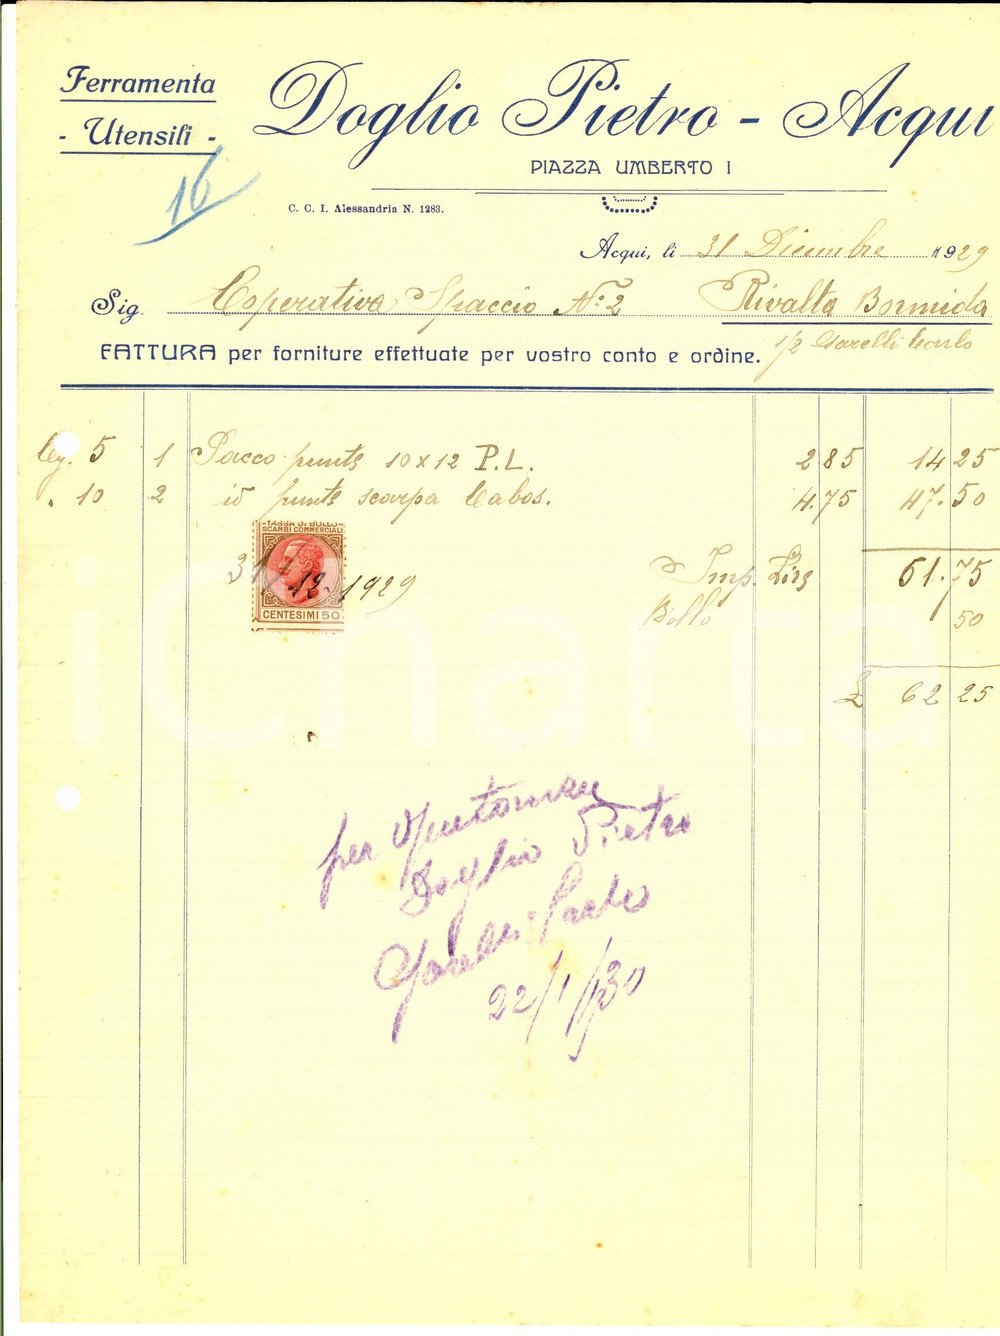 Ferramenta
- Utensili -
Doglio Pietro - Acqui
PIAZZA UMBERTO I
16
C. C. I. Alessandria N. 1283.
Acqui, li 31 Dicembre 1929
Sig. Coperativa Spaccio No. 2 Rivalta Bormida
1/2 Garelli Carlo
FATTURA per forniture effettuate per vostro conto e ordine.
5 1 Pacco punte 10x12 P.L. 2 85 14 25
" 10 2 id punte scarpa Cabos. 4.75 47.50
TASSA DI BOLLO
SCAMBI COMMERCIALI
31/12-1929 Imp. Lire 61.75
CENTESIMI 50
Bollo 50
£ 62 25
per
Doglio Pietro
Garelli Carlo
22/1/930
iCharta